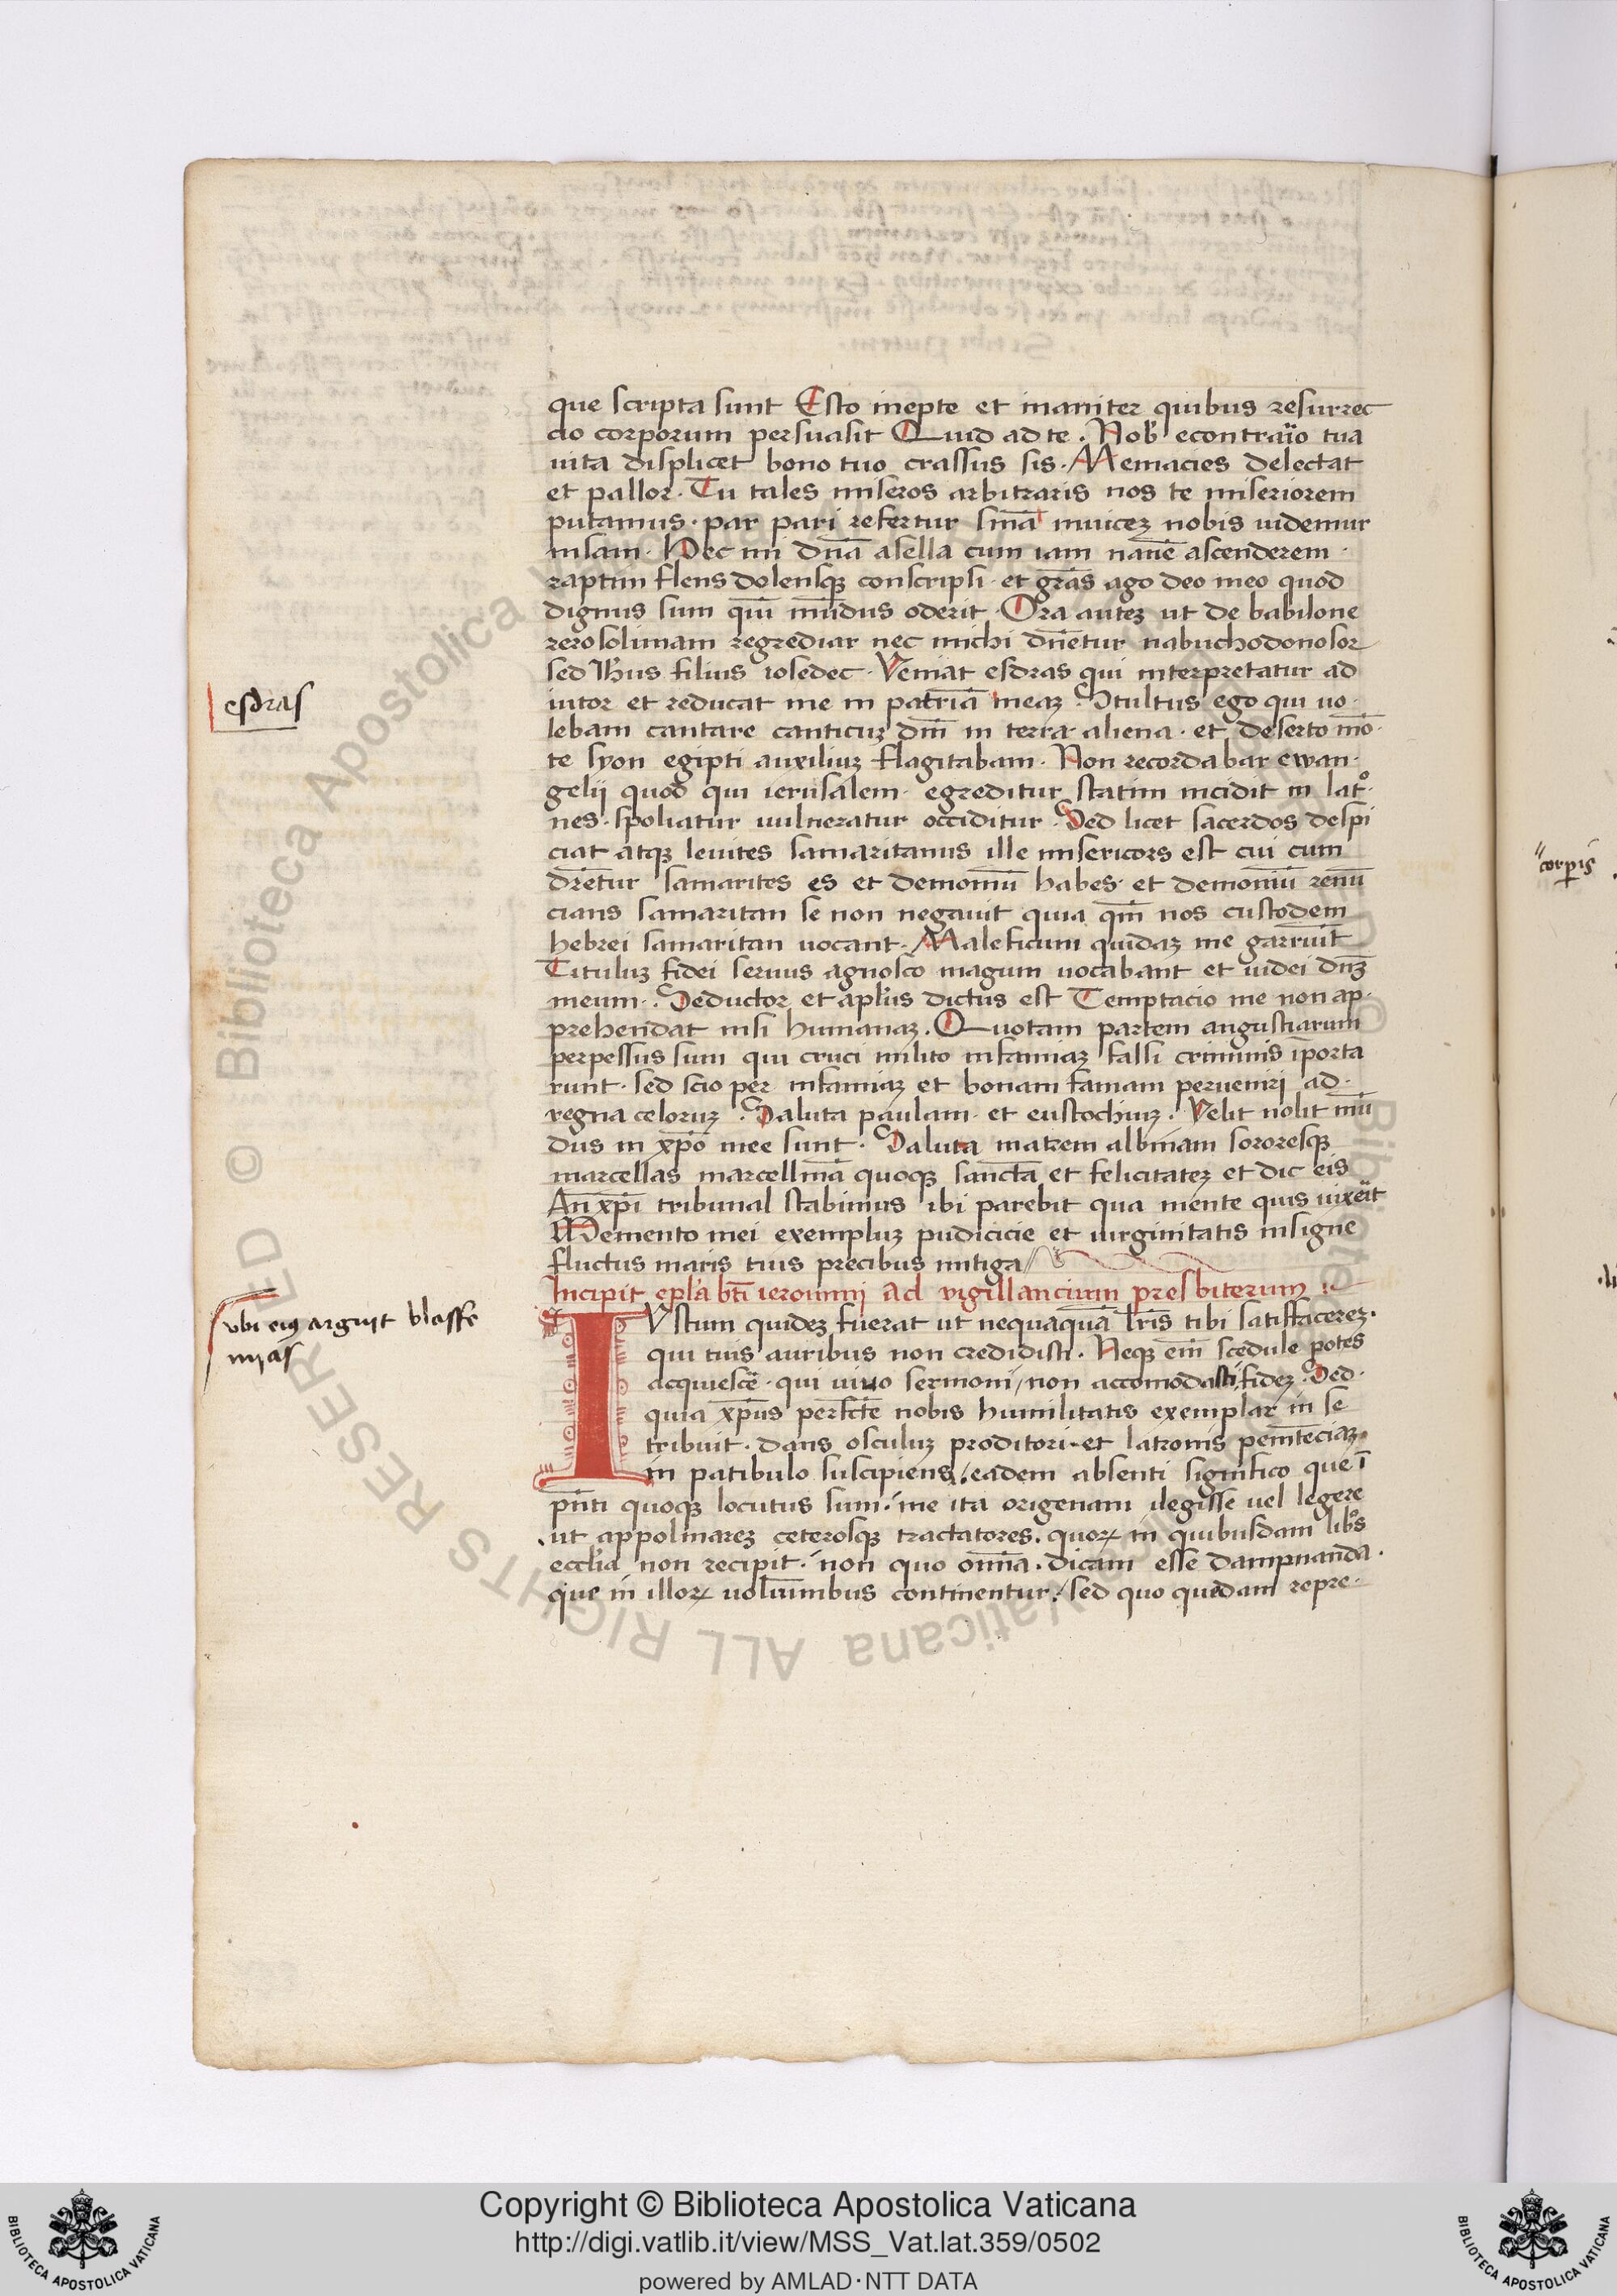 que scripta sunt Esto inepte et inaniter quibus resurrec
cio corporum persuasit Quid ad te . Nob̃ econtrario tua
uita displicet bono tuo crassus sis . Me macies delectat
et pallor . Tu tales miseros arbitraris nos te miseriorem
putamus . par pari refertur sn̄ia inuiceꝫ nobis uidemur
insani . Hec mi dn̄a asella cum iam nauē ascenderem .
raptim flens dolensqꝫ conscripsi . et grãs ago deo meo quod
dignus sum quē mūdus oderit . Ora auteꝫ ut de babilone
ierosolimam regrediar nec michi dn̄etur nabuchodonosor
sed Ihus filius iosedec . Veniat esdras qui interpretatur ad
iutor et reducat me in patriā meaꝫ . Stultus ego qui uo .
lebam cantare canticuꝫ dn̄i in terra aliena . et deserto mō .
te syon egipti auxiliuꝫ flagitabam . Non recordabar ewan .
gelij quod qui ierusalem egreditur statim incidit in lat°.
nes . spoliatur uulneratur occiditur . Sed licet sacerdos despi
ciat atqꝫ leuites samaritanus ille misericors est cui cum
dr̄etur samarites es et demoniū habes . et demoniū renū
cians samaritan se non negauit quia qm̄ nos custodem
hebrei samaritan uocant . Maleficum quidaꝫ me garruit
Tituluꝫ fidei seruus agnosco magum uocabant et iudei dn̄ꝫ
meum . Seductor et apl̓us dictus est Temptacio me non ap .
prehendat nisi humanaꝫ . Quotam partem angustiarum
perpessus sum qui cruci milito infamiaꝫ falsi criminis īporta
runt . sed scio per infamiaꝫ et bonam famam perueniri ad .
regna celoruꝫ . Saluta paulam . et eustochiuꝫ . Velit nolit mū
dus in xp̄o mee sunt . Saluta matrem albinam sororesqꝫ
marcellas marcellinā quoqꝫ sanctā et felicitateꝫ et dic eis
An̄ xp̄i tribunal stabimus ibi parebit qua mente quis uixẽit
Memento mei exempluꝫ pudicicie et uirginitatis insigne
fluctus maris tuis precibus mitiga
esdras
Incipit epl̓a btī ieronimi ad vigillancium presbiterum
vbi eiꝯ arguit blasfe
mias
IVstum quideꝫ fuerat ut nequaquā lr̄is tibi satisfacereꝫ .
qui tuis auribus non credidisti . Neqꝫ em̄ scedule potes
acquiescẽ . qui uiuo sermoni / non accomodasti fideꝫ . Sed .
quia xp̄us perfcē nobis humilitatis exemplar in se
tribuit . dans osculuꝫ proditori . et latronis penitēciaꝫ .
in patibulo suscipiens / eadem absenti significo que ī
pn̄ti quoqꝫ locutus sum . me ita origenam ilegisse uel legere
ut appolinareꝫ ceterosqꝫ tractatores . quoꝝ in quibusdam lib°s
eccl̓ia non recipit . non quo om̄ia . dicam esse dampnanda .
que in illoꝝ uolūinibus continentur / sed quo quedam repre .
corpis
Copyright © Biblioteca Apostolica Vaticana
http://digi.vatlib.it/view/MSS_Vat.lat.359/0502
powered by AMLAD·NTT DATA
BIBLIOTECA APOSTOLICA VATICANA
BIBLIOTECA APOSTOLICA VATICANA